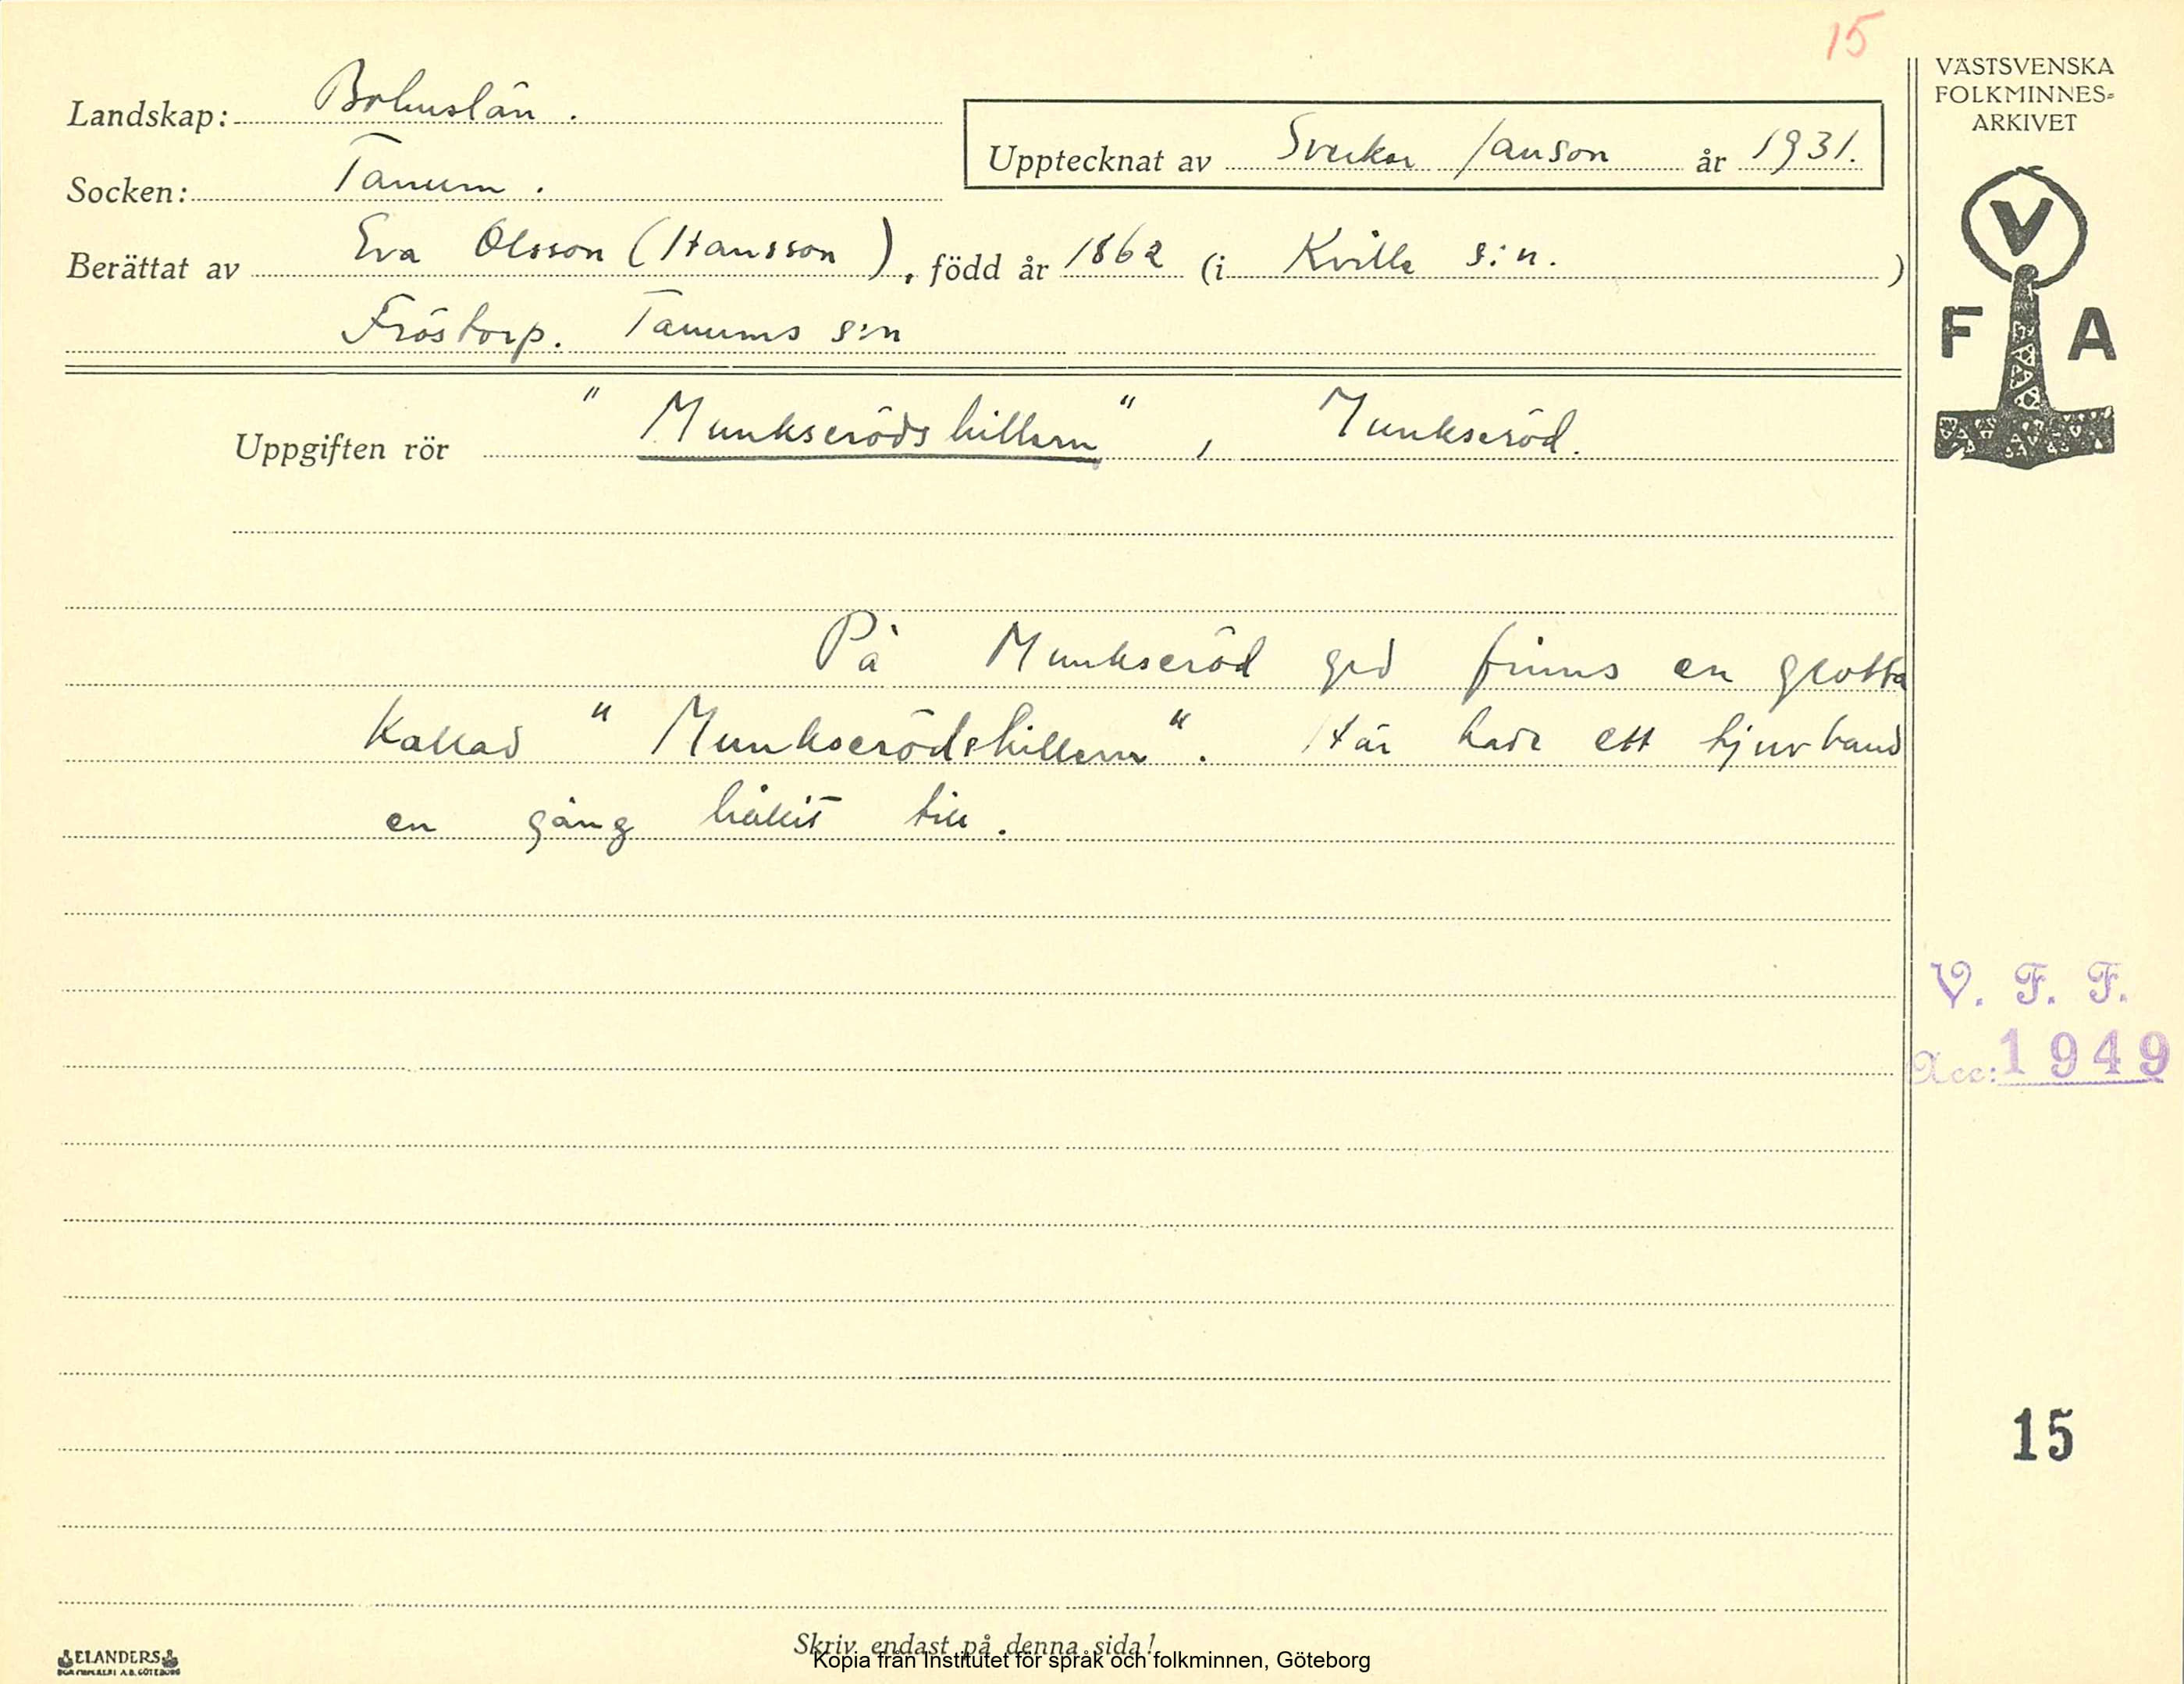 15
VÄSTSVENSKA
FOLKMINNES=
ARKIVET
Landskap: Bohuslän.
Upptecknat av Sverker Janson år 1931.
Socken: Tanum.
Berättat av Eva Olsson (Hansson), född år 1862 (i Kville s:n.)
Fröstorp. Tanums s:n
V
F A
Uppgiften rör "Munkserödshillern", Munkseröd.
På Munkseröd grd finns en grotta
Kallad "Munkserödshillern". Här hade ett tjuvband
en gång hållit till.
V. F. F.
Acc: 1949
15
Skriv endast på denna sida!
Kopia från Institutet för språk och folkminnen, Göteborg
ELANDERS
BOKTRYCKERI A.B. GÖTEBORG